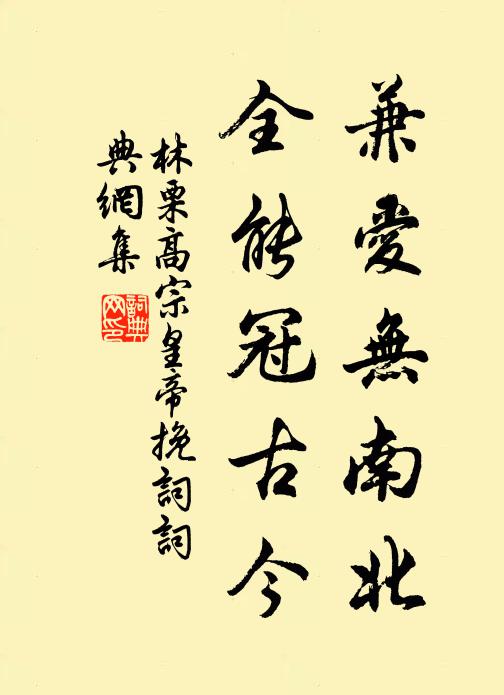 兼愛無南北
全能冠古今
林栗高宗皇帝挽詞詞
典網集
詞典
网印